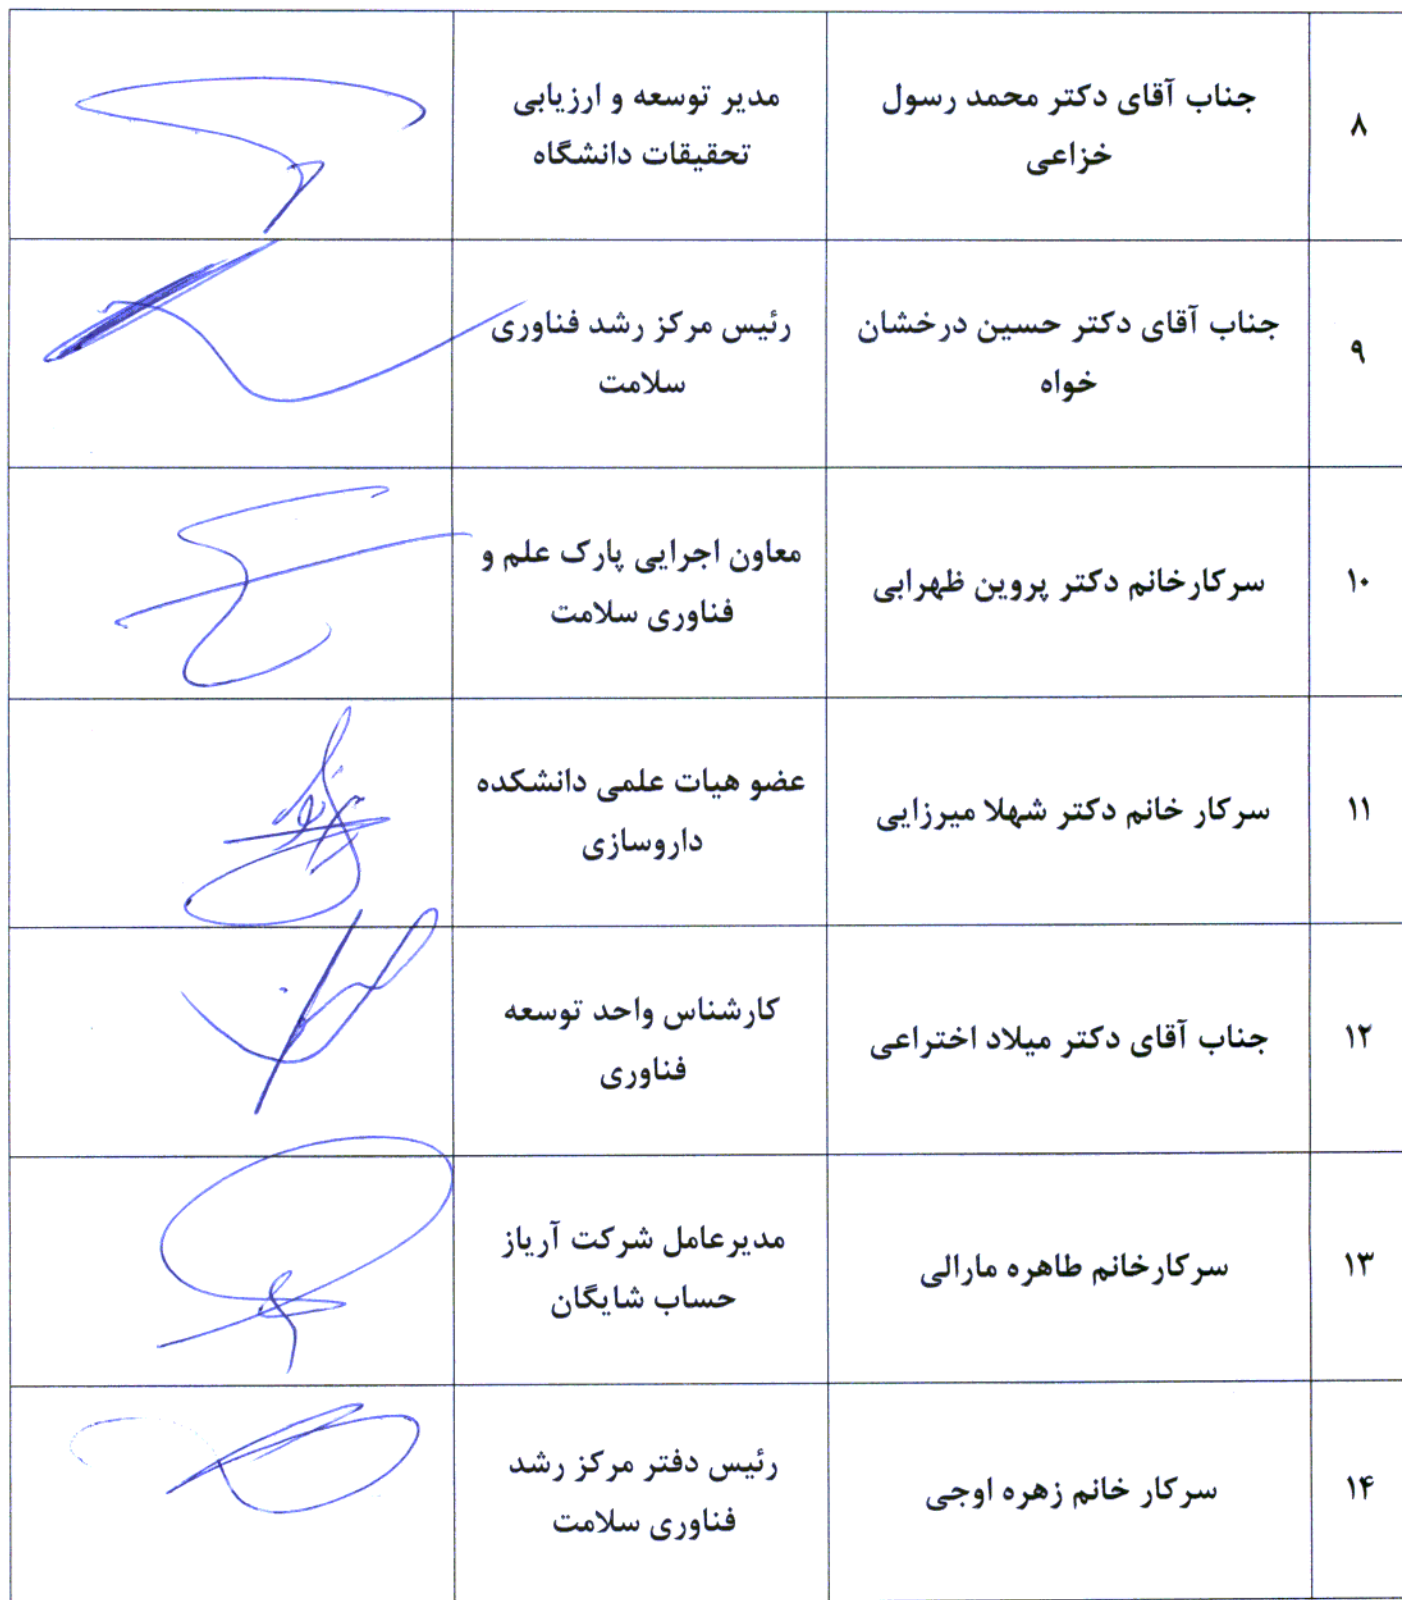 ۸
جناب آقای دکتر محمد رسول
خزاعی
مدیر توسعه و ارزیابی
تحقیقات دانشگاه
۹
جناب آقای دکتر حسین درخشان
خواه
رئیس مرکز رشد فناوری
سلامت
۱۰
سرکارخانم دکتر پروین ظهرابی
معاون اجرایی پارک علم و
فناوری سلامت
۱۱
سرکار خانم دکتر شهلا میرزایی
عضو هیات علمی دانشکده
داروسازی
۱۲
جناب آقای دکتر میلاد اختراعی
کارشناس واحد توسعه
فناوری
۱۳
سرکارخانم طاهره مارالی
مدیرعامل شرکت آریاز
حساب شایگان
۱۴
سرکار خانم زهره اوجی
رئیس دفتر مرکز رشد
فناوری سلامت